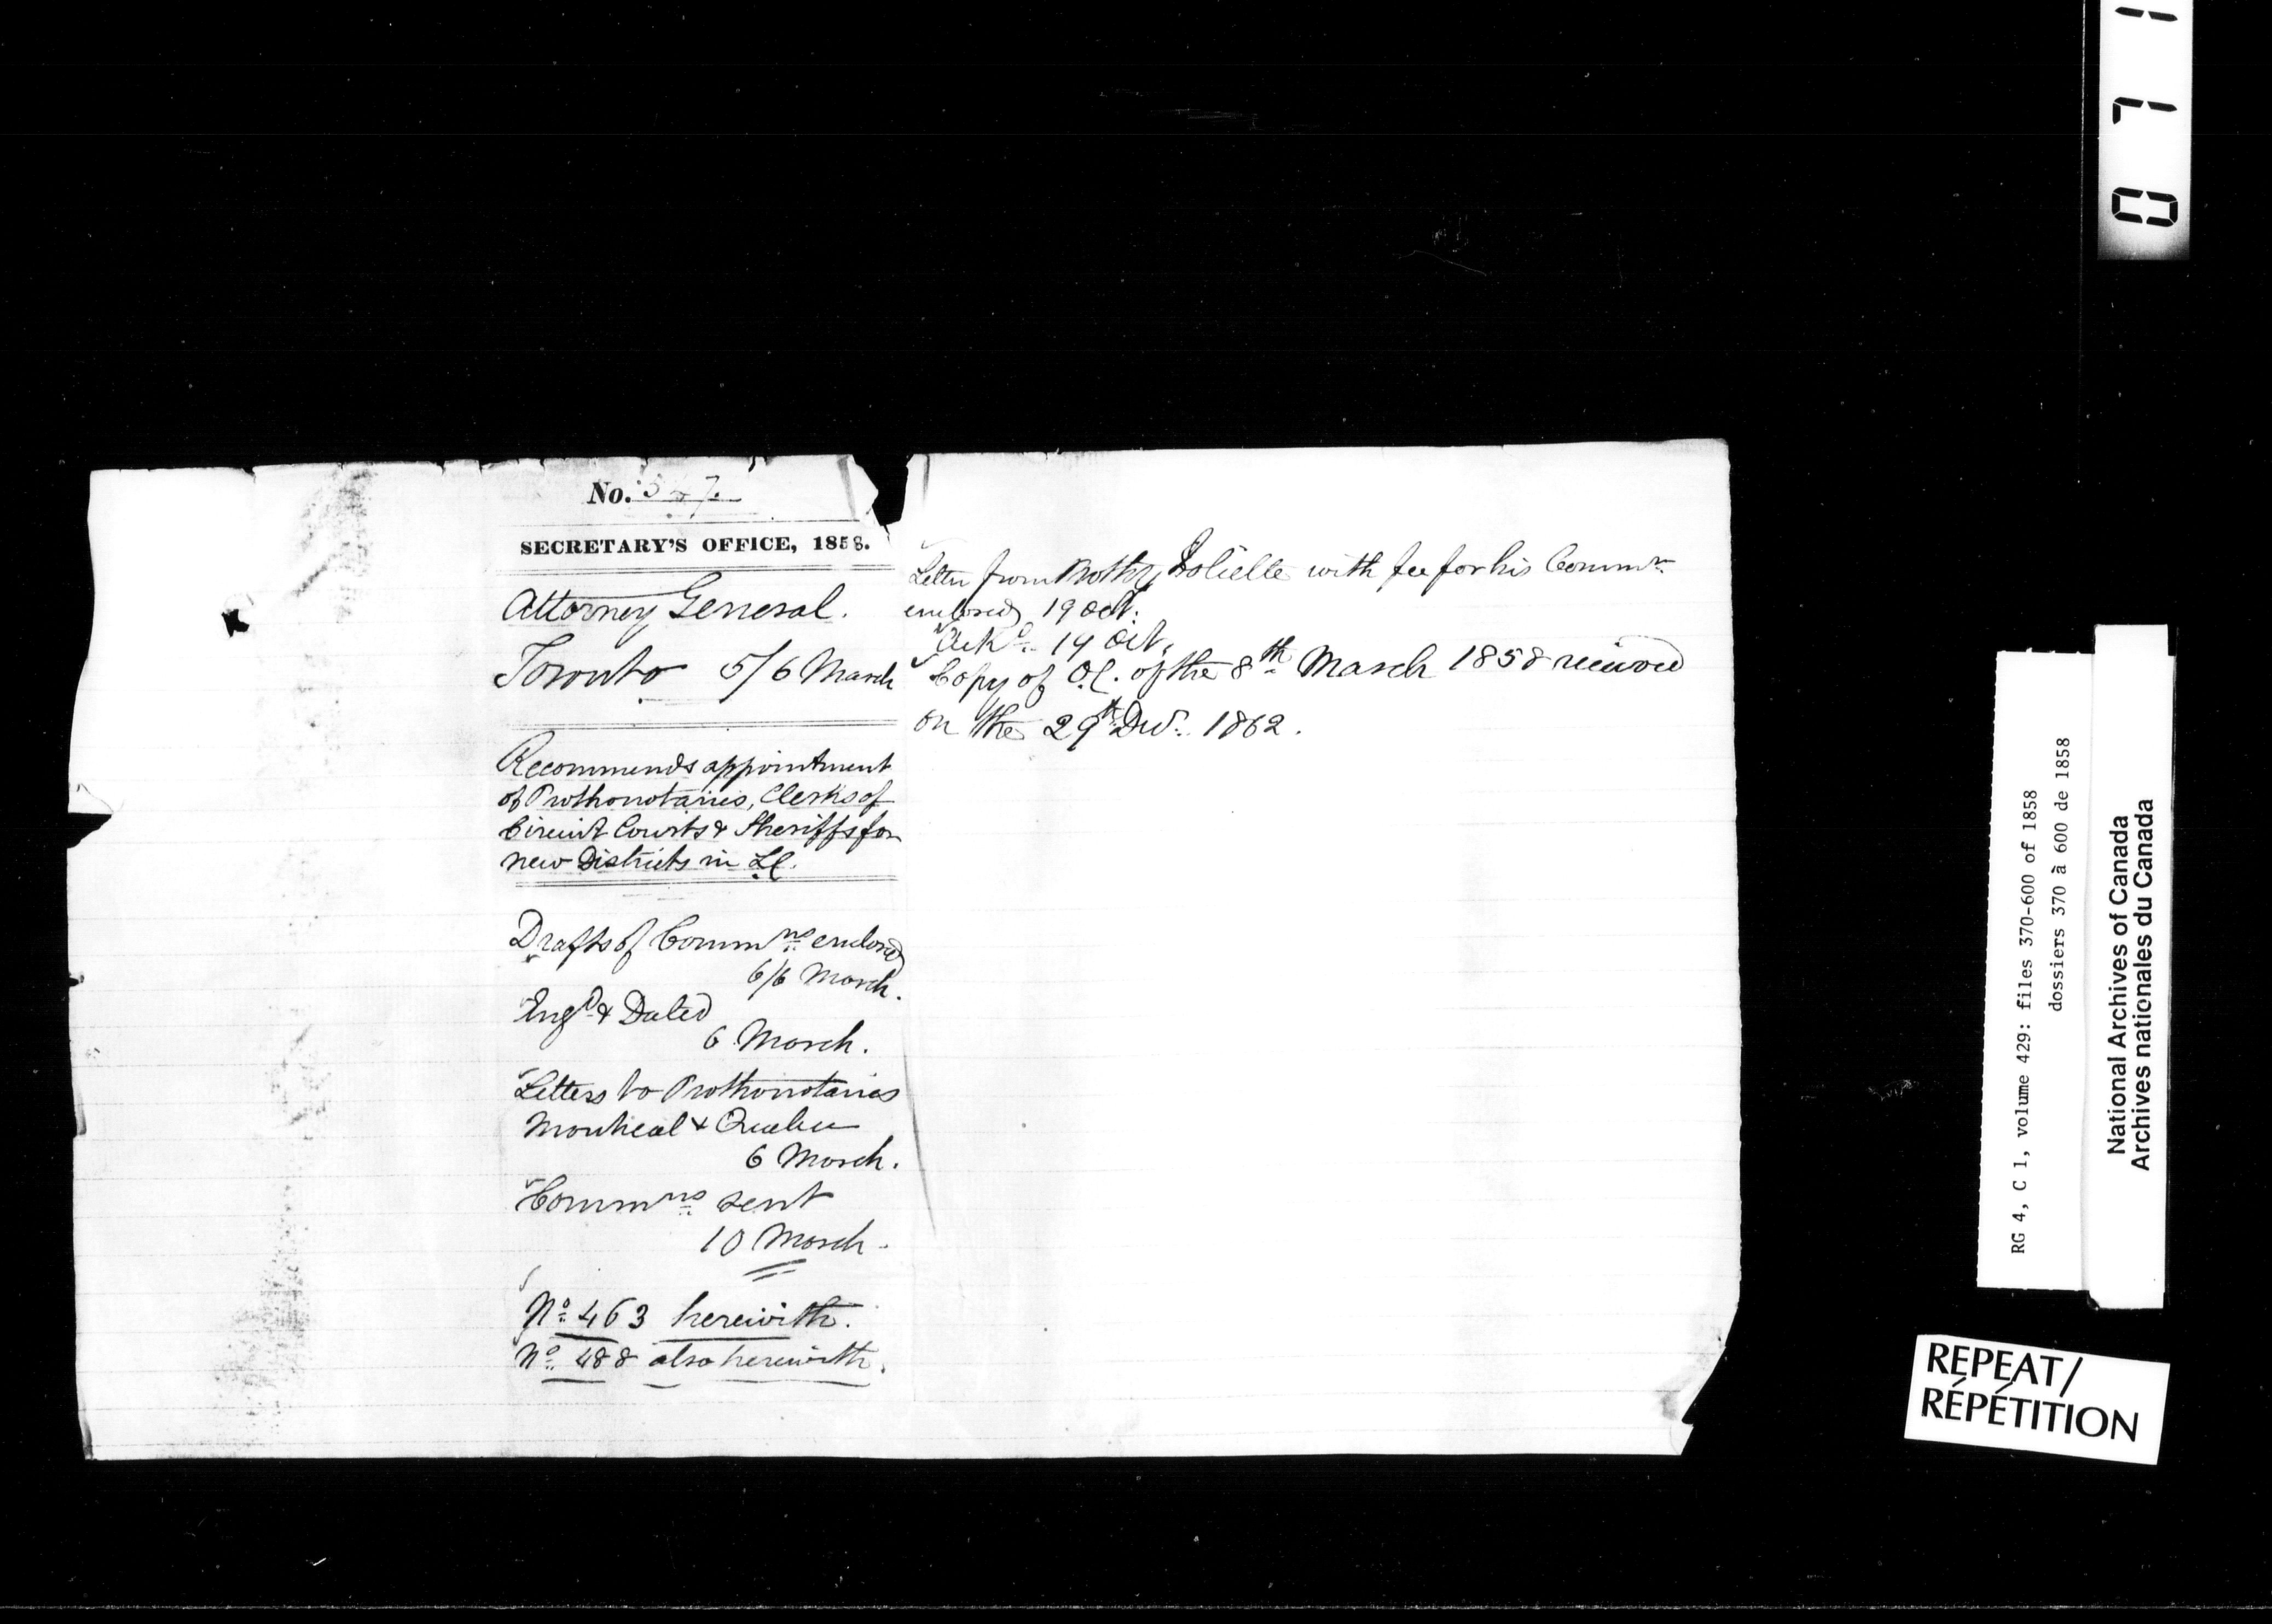 No. 547.
SECRETARY'S OFFICE, 1858.
Attorney General.
Toronto 5/6 March
Recommends appointment
of Prothonotaries, Clerks of
Circuit Courts & Sheriffs for
new Districts in L.C.
Drafts of Commns enclosed
6/6 March.
Engd & Dated
6 March.
Letters to Prothonotaries
Montreal & Quebec
6 March.
Commns sent
10 March.
No. 463 herewith.
No. 488 also herewith.
Letter from Prothy Joliette with fee for his Commn
enclosed 19 Oct.
Ackd. 19 Oct.
Copy of O.C. of the 8th March 1858 received
on the 29th Dec. 1862.
071
RG 4, C 1, volume 429: files 370-600 of 1858
dossiers 370 à 600 de 1858
National Archives of Canada
Archives nationales du Canada
REPEAT/
RÉPÉTITION